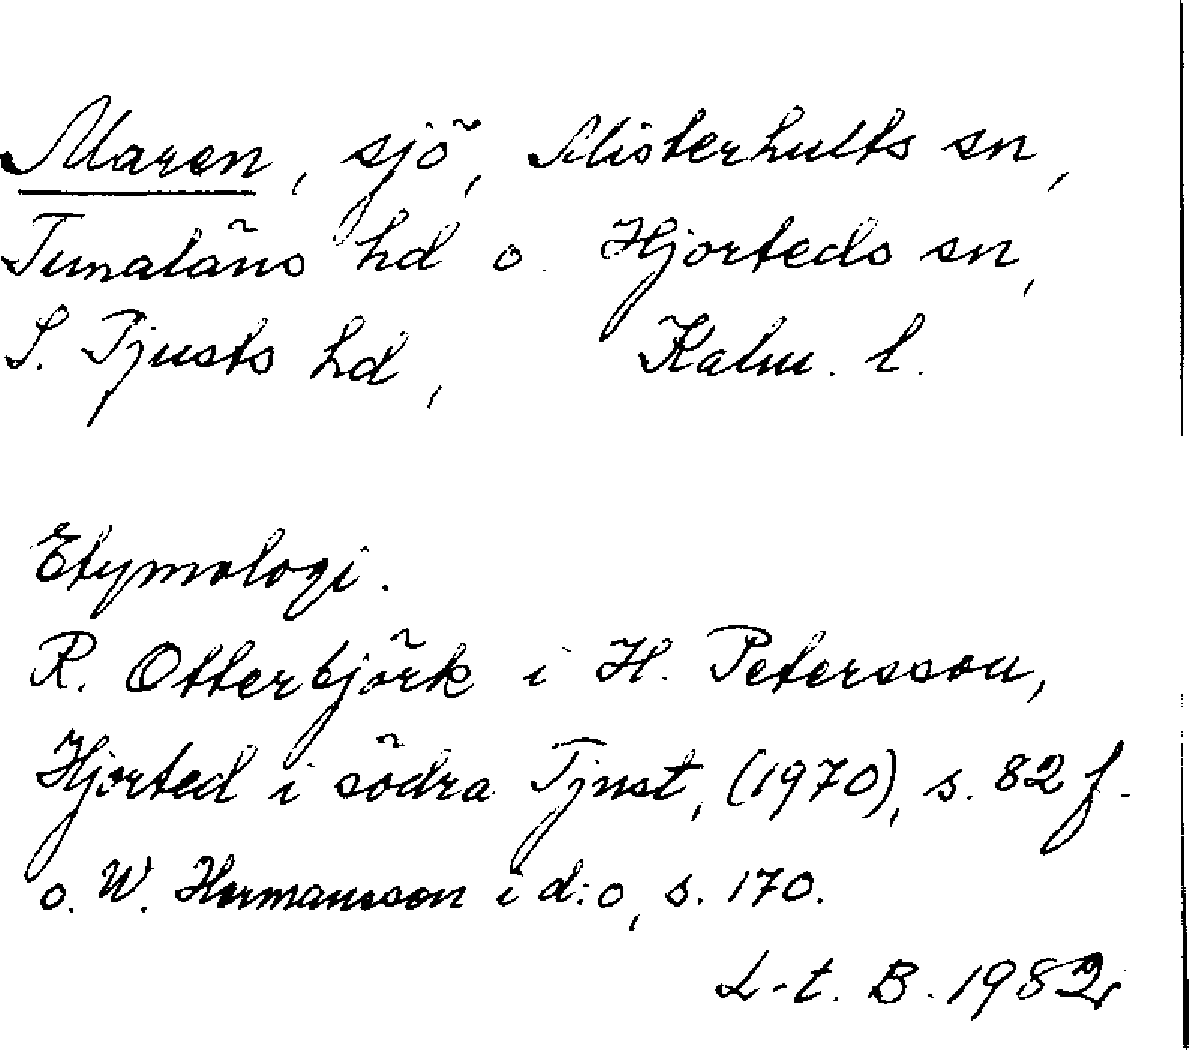 Maren, sjö, Misterhults sn,
Tunaläns hd o. Hjorteds sn,
S. Tjusts hd, Kalm. l.
Etymologi.
R. Otterbjörk i H. Petersson,
Hjorted i södra Tjust, (1970), s. 82 f.
o. W. Hermansson i d:o, s. 170.
L-t. B. 1982